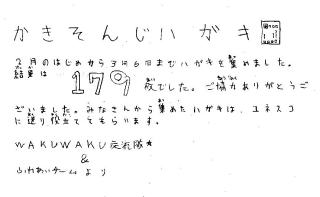 かきそんじハガキ
2月のはじめから3月6日までハガキを集めました。
結果は179枚でした。ご協力ありがとうご
ざいました。みなさんから集めたハガキは、ユネスコ
に送り役立ててもらいます。
WAKUWAKU
&
ふれあいチームより